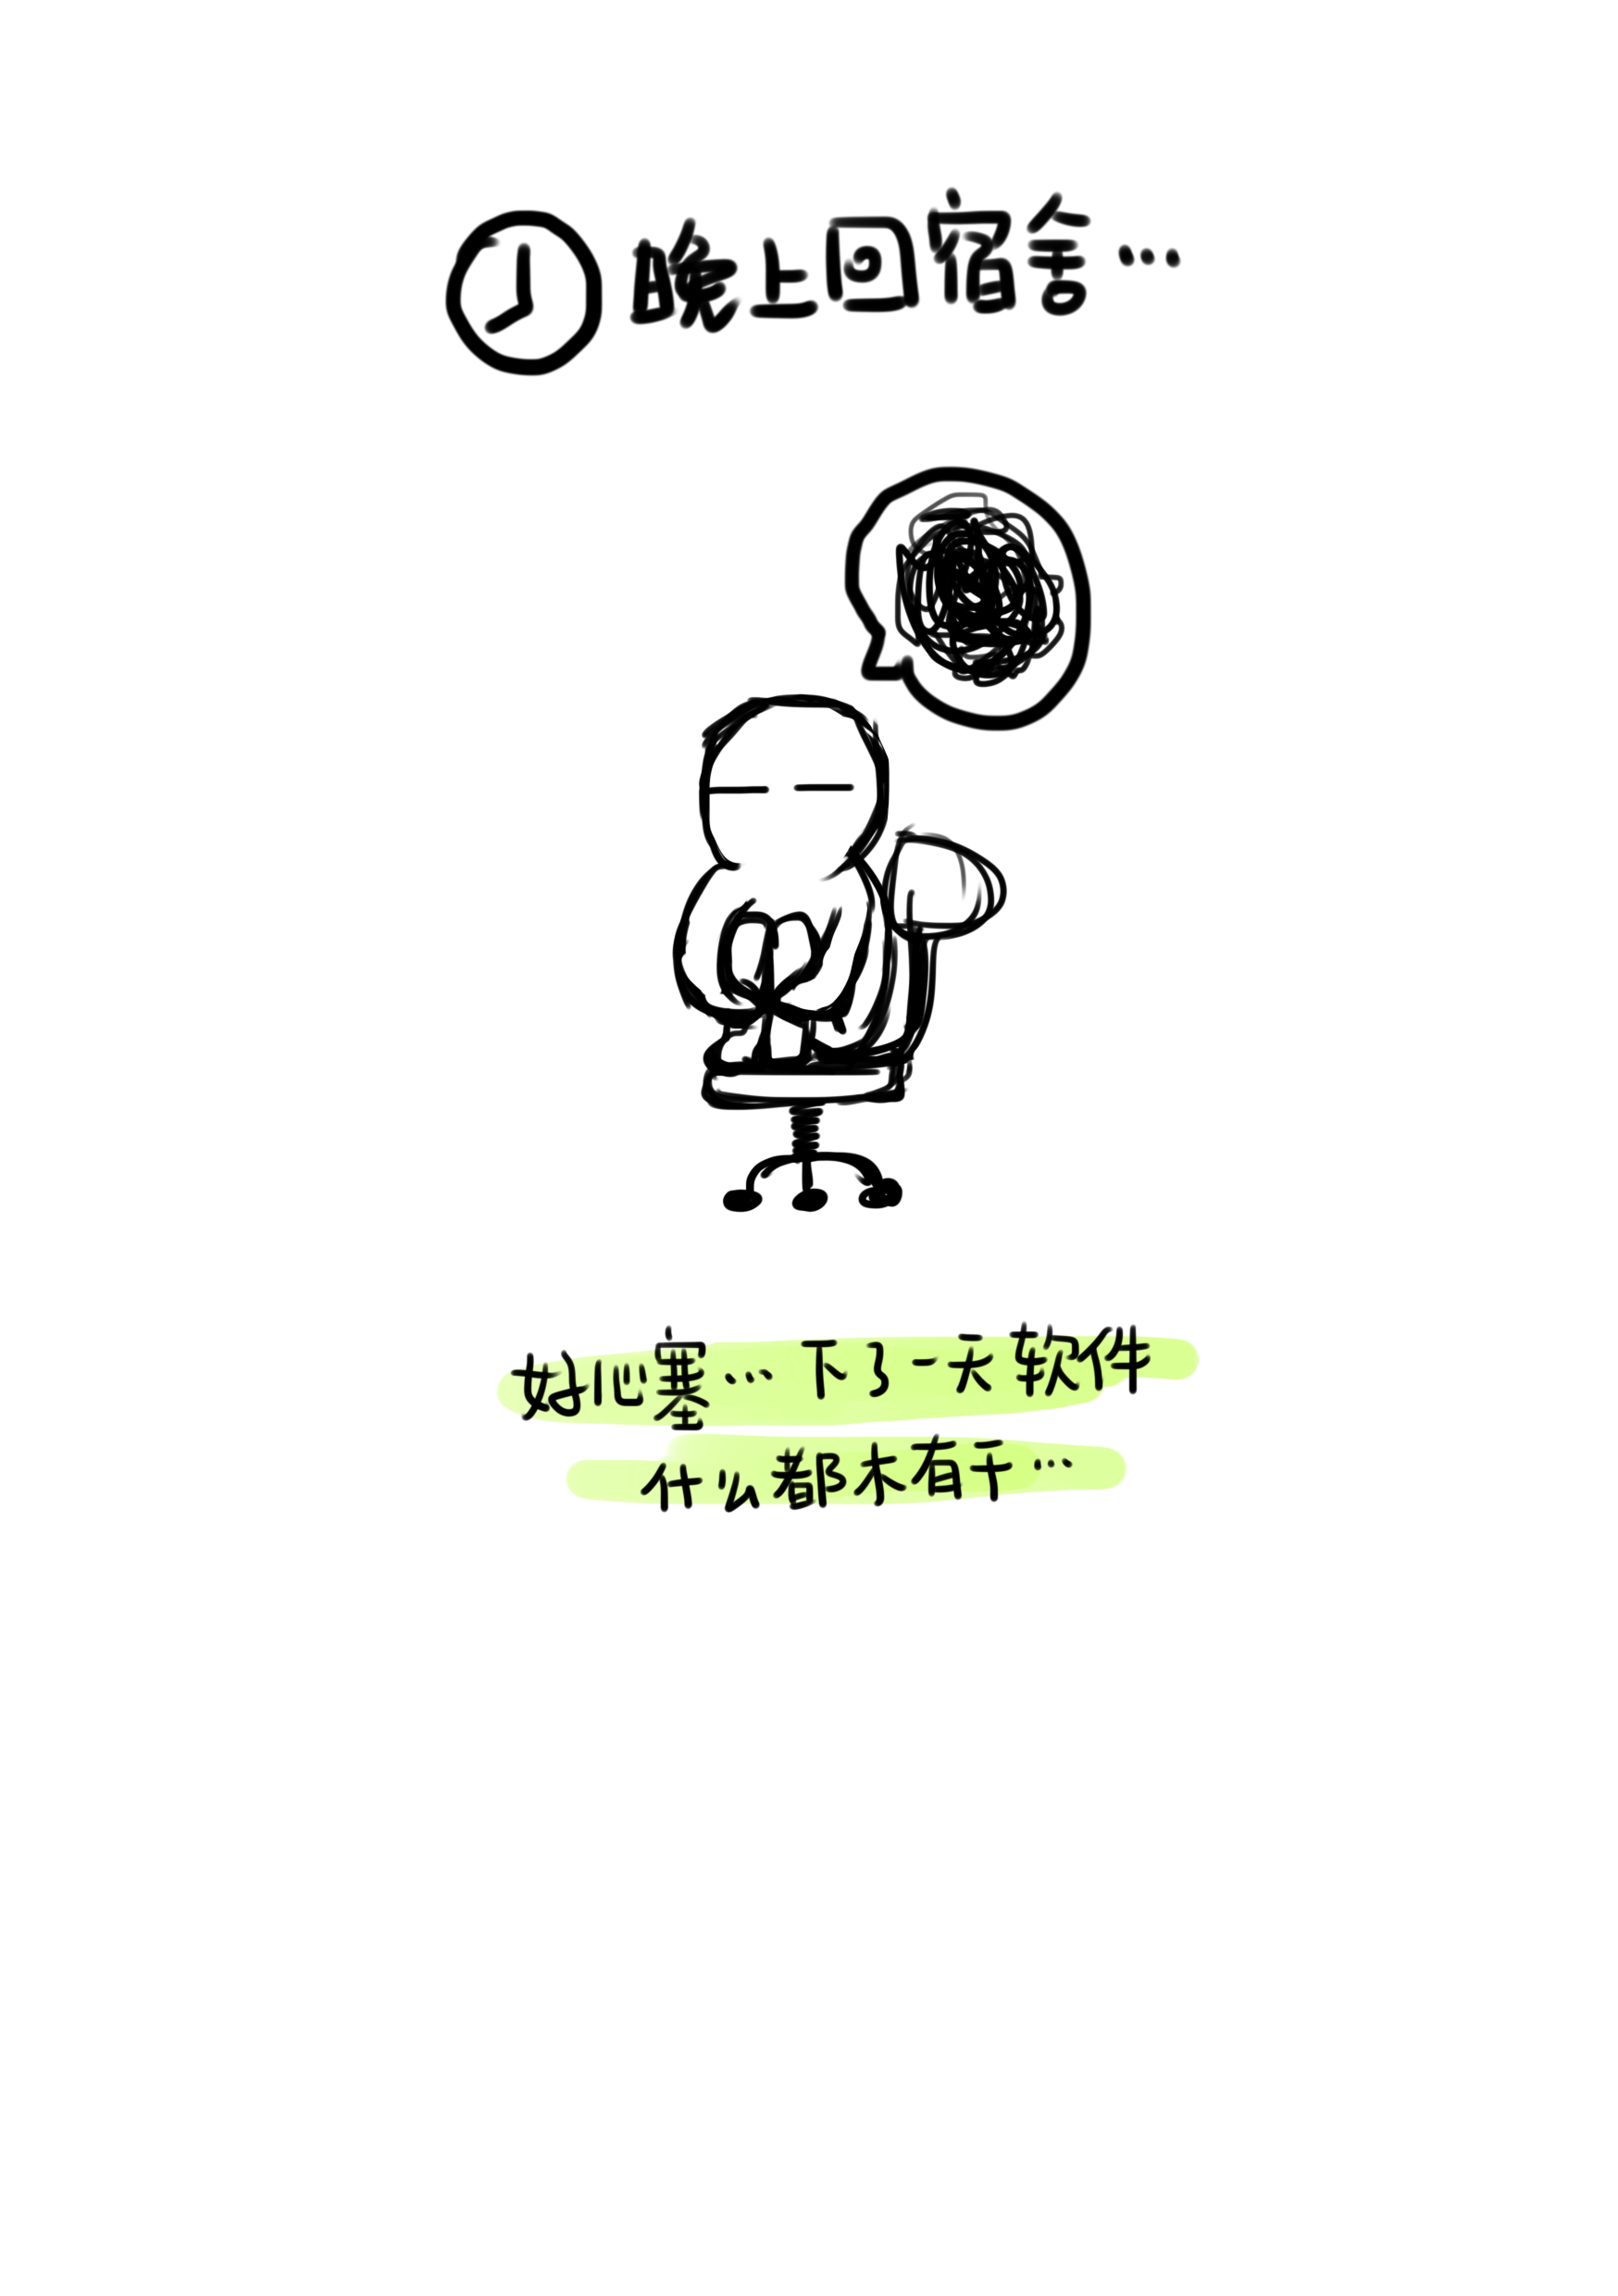 ① 晚上回宿舍…
好心塞…下了一天软件
什么都木有干…